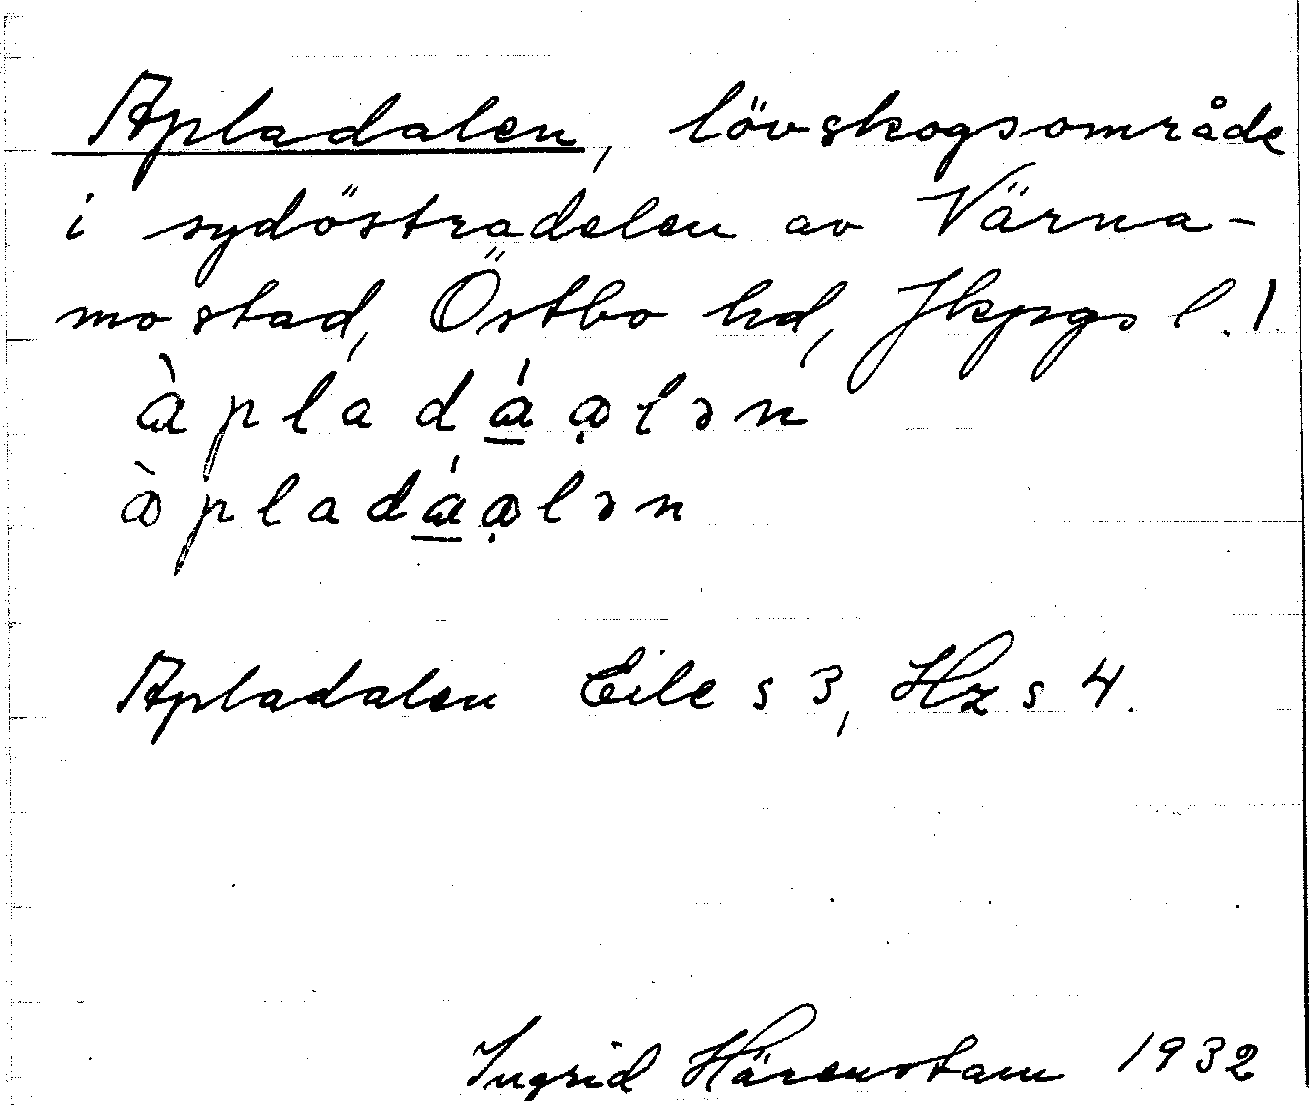 Apladalen, lövskogsområde
i sydöstradelen av Värna-
mo stad, Östbo hd, Jkpgs l.!
àpladáạlən
àpladáạlən
Apladalen Eile s 3, Hz s 4.
Ingrid Härenstam 1932